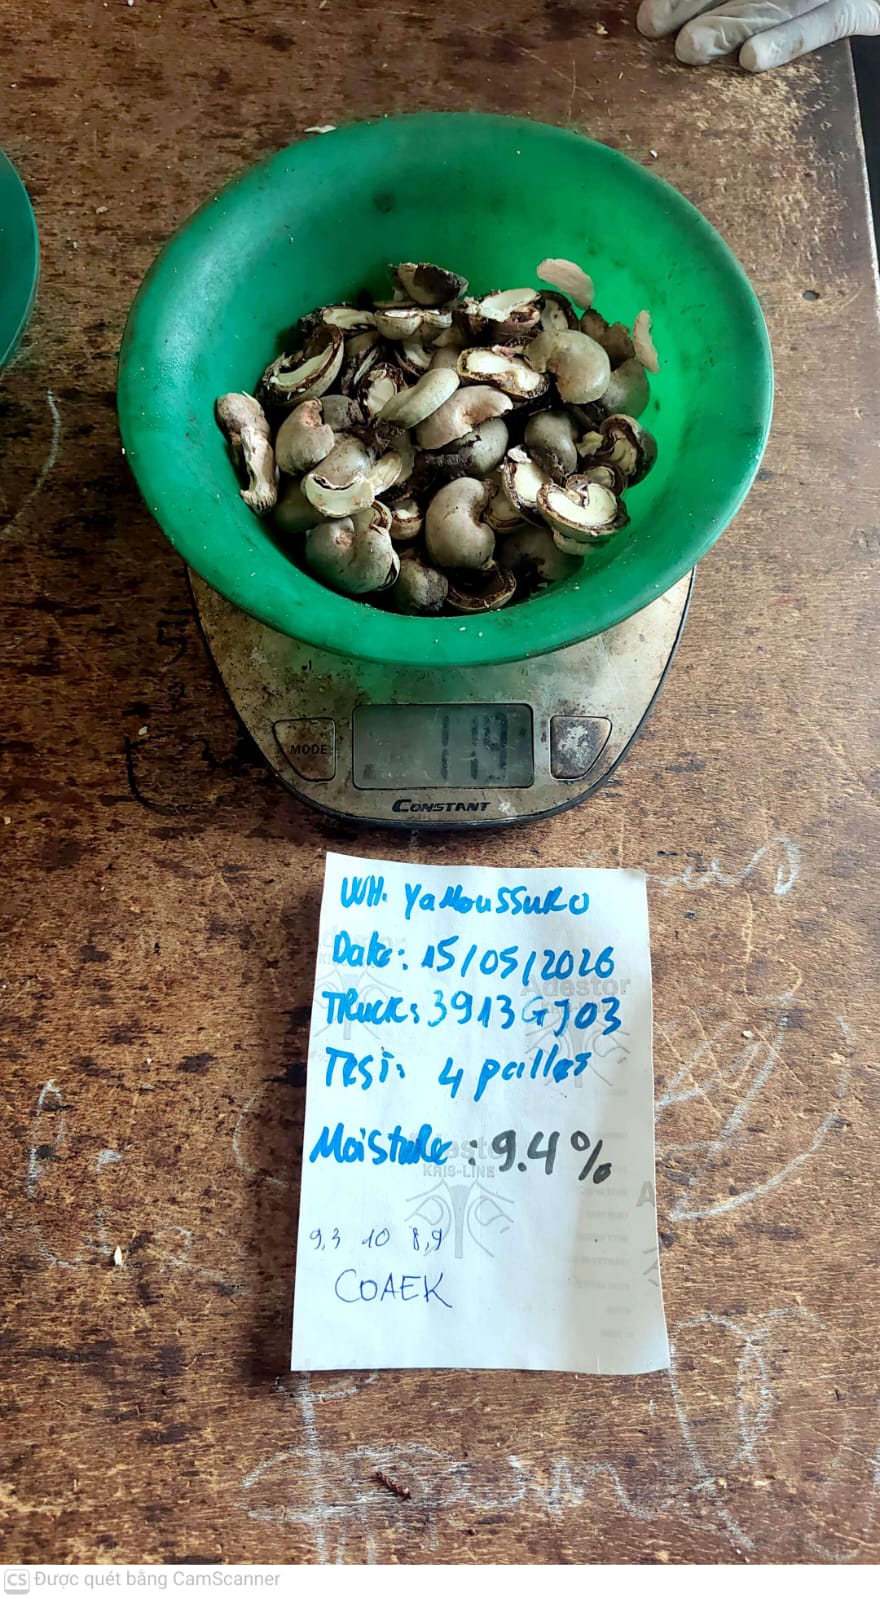 119
MODE
CONSTANT
WH. YaMouSSuKO
Date: 15/05/2026
TRuck: 3913GJ03
TEST: 4 palles
Adestor
MoistuRe: 9.4%
KRIS-LINE
9,3 10 8,9
COAEK
CS Được quét bằng CamScanner